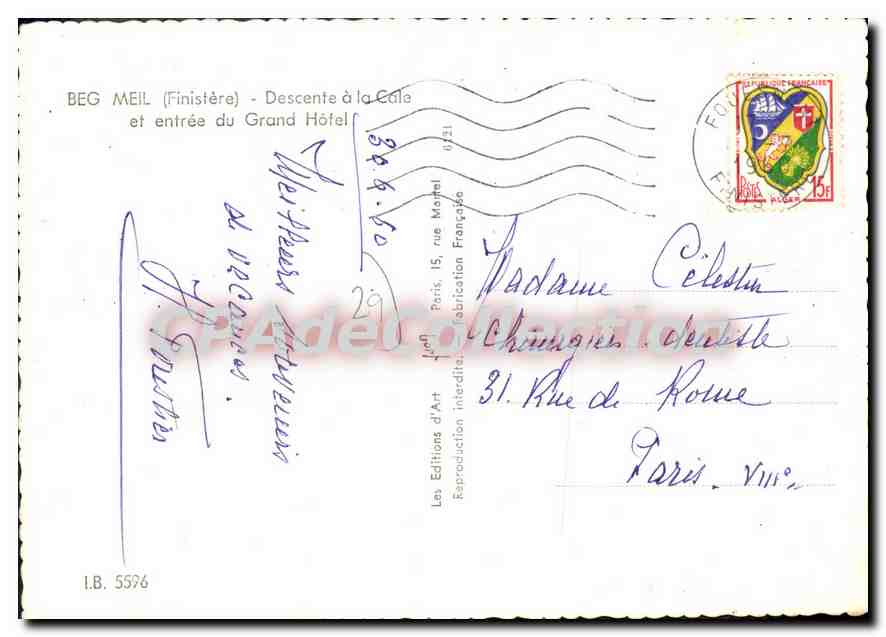 BEG MEIL (Finistère) - Descente à la Cale
et entrée du Grand Hôtel
30.6.60
Meilleurs souvenirs
de vacances.
29
6121
Les Editions d'Art Yvon Paris, 15, rue Martel
Reproduction interdite. Fabrication Française
RÉPUBLIQUE FRANÇAISE
POSTES
15F
ALGER
FOU
Madame Célestin
Chirurgien-dentiste
31. Rue de Rome
Paris. VIIIe
CPAdeCollection
I.B. 5596